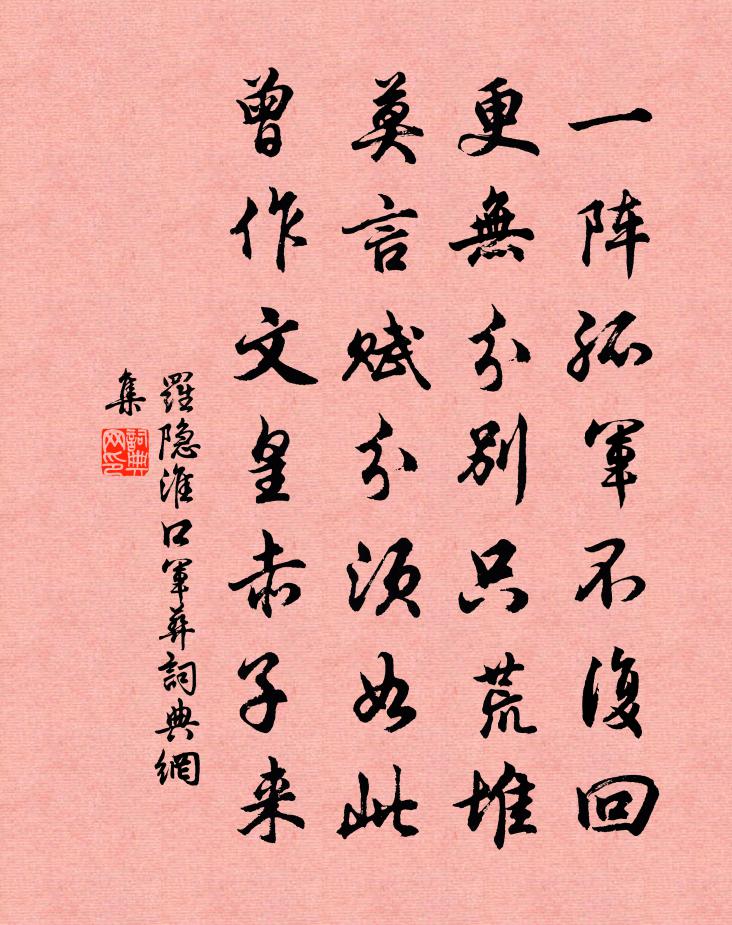 一阵孤軍不復回
更無分别只荒堆
莫言賦分須如此
曾作文皇赤子来
羅隐淮口軍葬詞典網
集
詞典网印